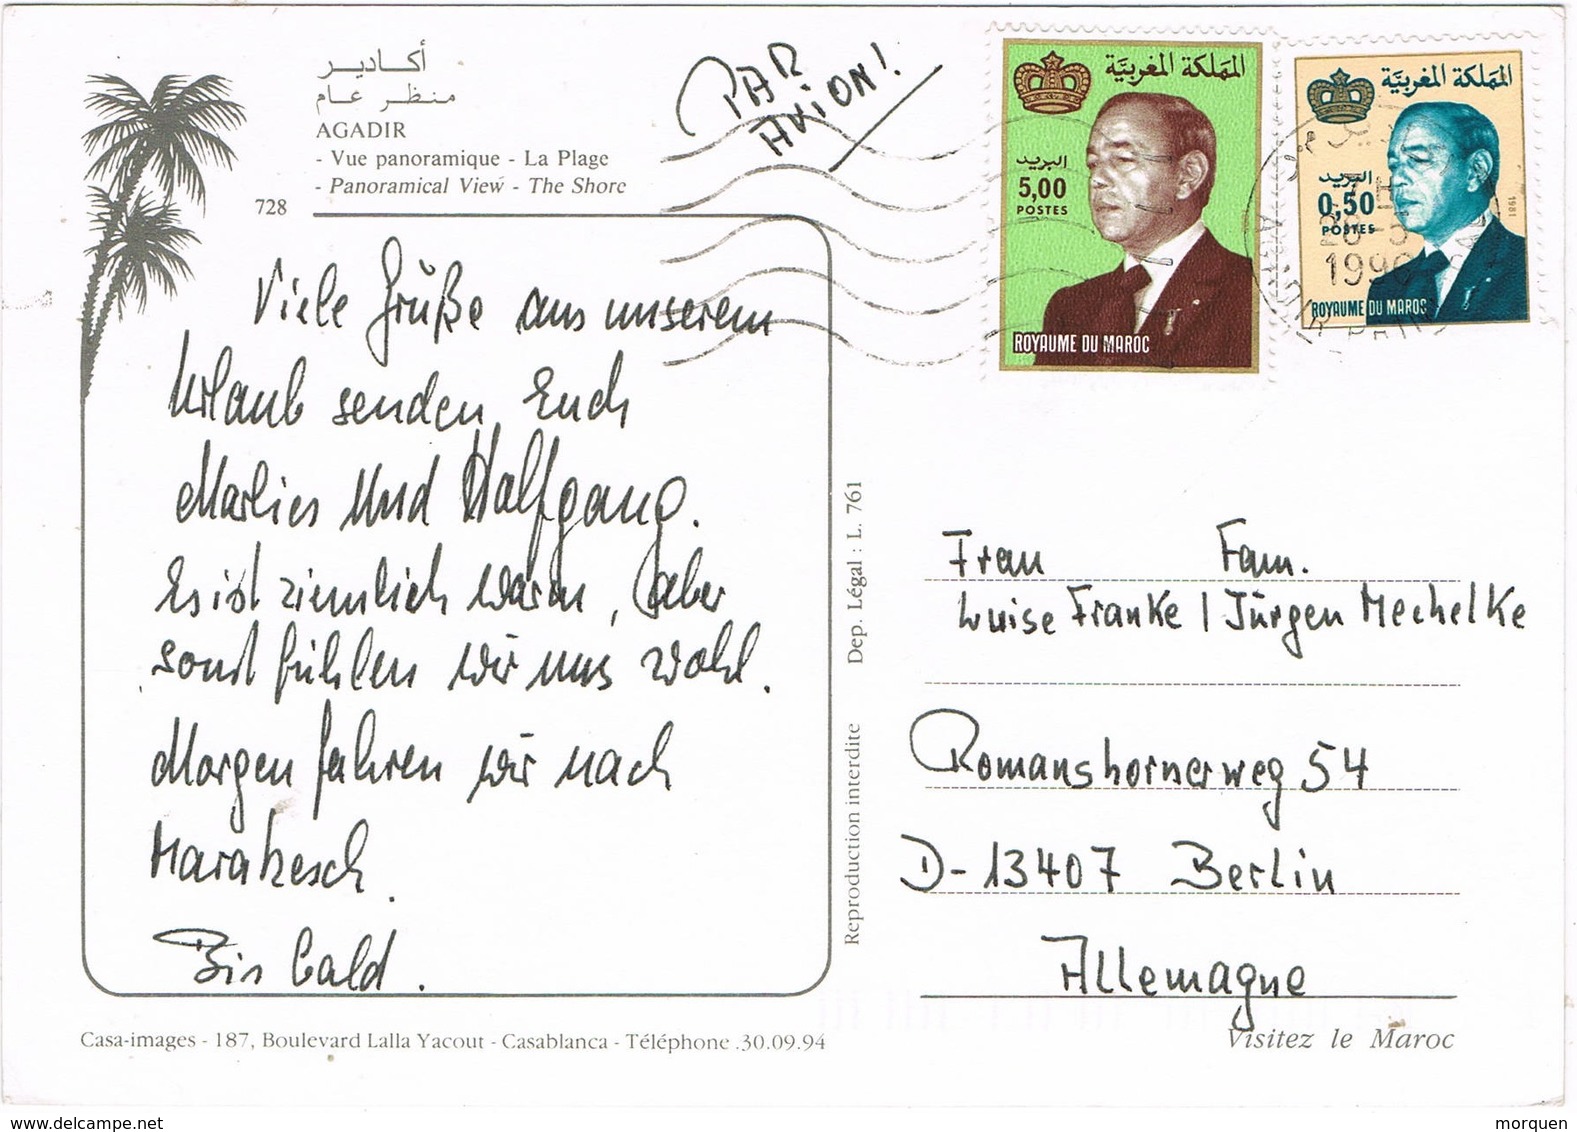 أكادير
منظر عام
AGADIR
- Vue panoramique - La Plage
- Panoramical View - The Shore
728
PAR
AVION!
المملكة المغربية
البريد
5,00
POSTES
ROYAUME DU MAROC
المملكة المغربية
البريد
0,50
POSTES
1981
ROYAUME DU MAROC
1996
Viele Grüße aus unserem
Urlaub senden Euch
Marlies und Wolfgang.
Es ist ziemlich warm, aber
sonst fühlen wir uns wohl.
Morgen fahren wir nach
Marakesch.
Bis bald.
Dep. Légal : L. 761
Reproduction interdite
Frau Fam.
Luise Franke / Jürgen Mechelke
Romanshornerweg 54
D-13407 Berlin
Allemagne
Casa-images - 187, Boulevard Lalla Yacout - Casablanca - Téléphone .30.09.94
Visitez le Maroc
www.delcampe.net
morquen